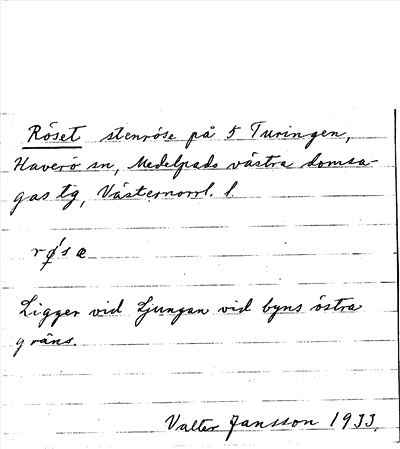 Röset stenröse på 5 Turingen,
Haverö sn, Medelpads västra domsa-
gas tg, Västernorrl. l.
rǿsæ
Ligger vid Ljungan vid byns östra
gräns.
Valter Jansson 1933.